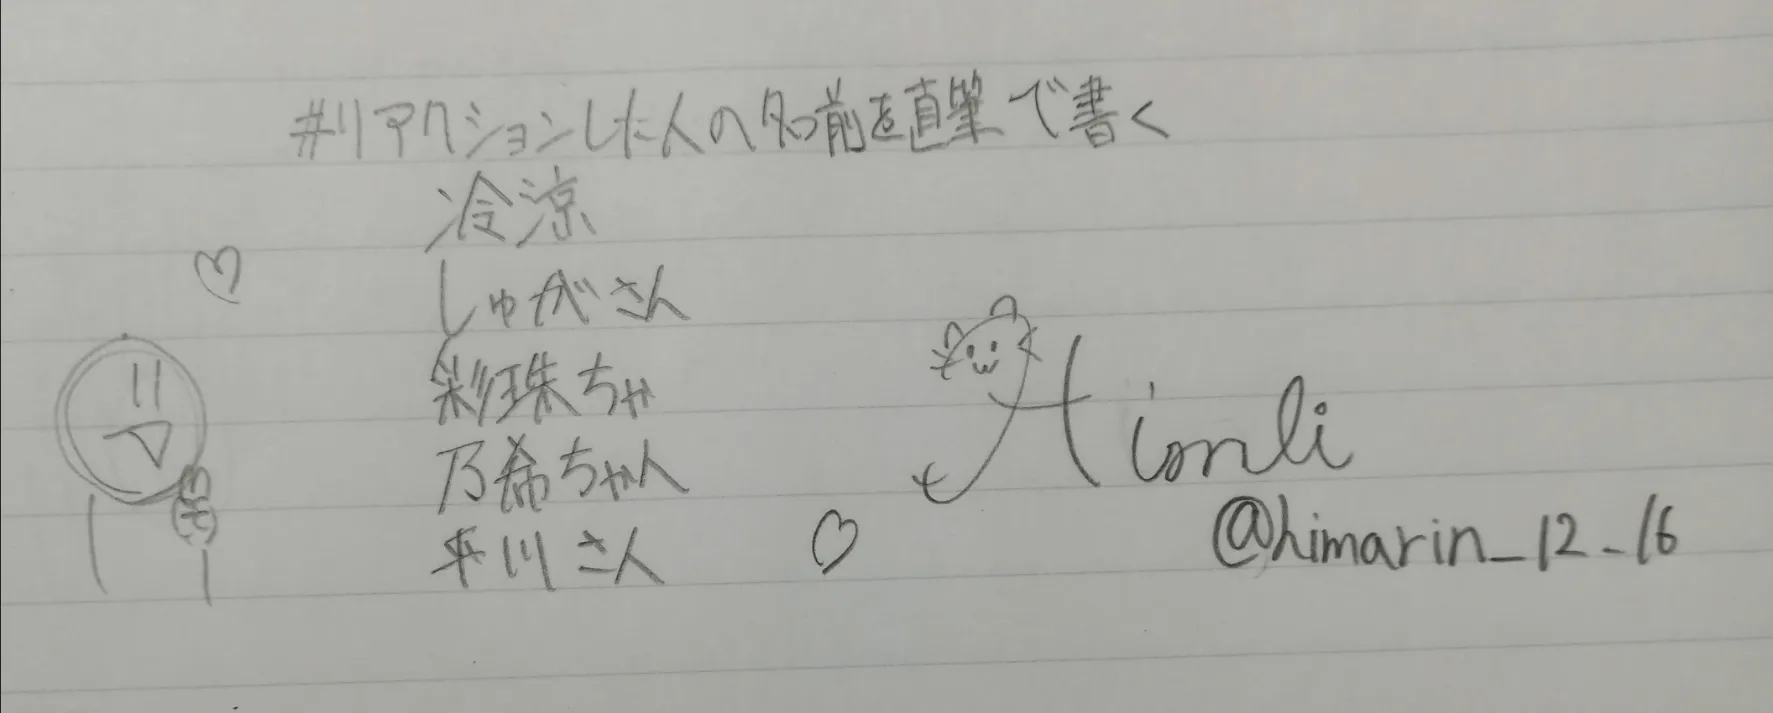 #リアクションした人の名前を直筆で書く
冷涼
しゅがさん
彩珠ちゃ
乃希ちゃん
平川さん
@himarin_12_16